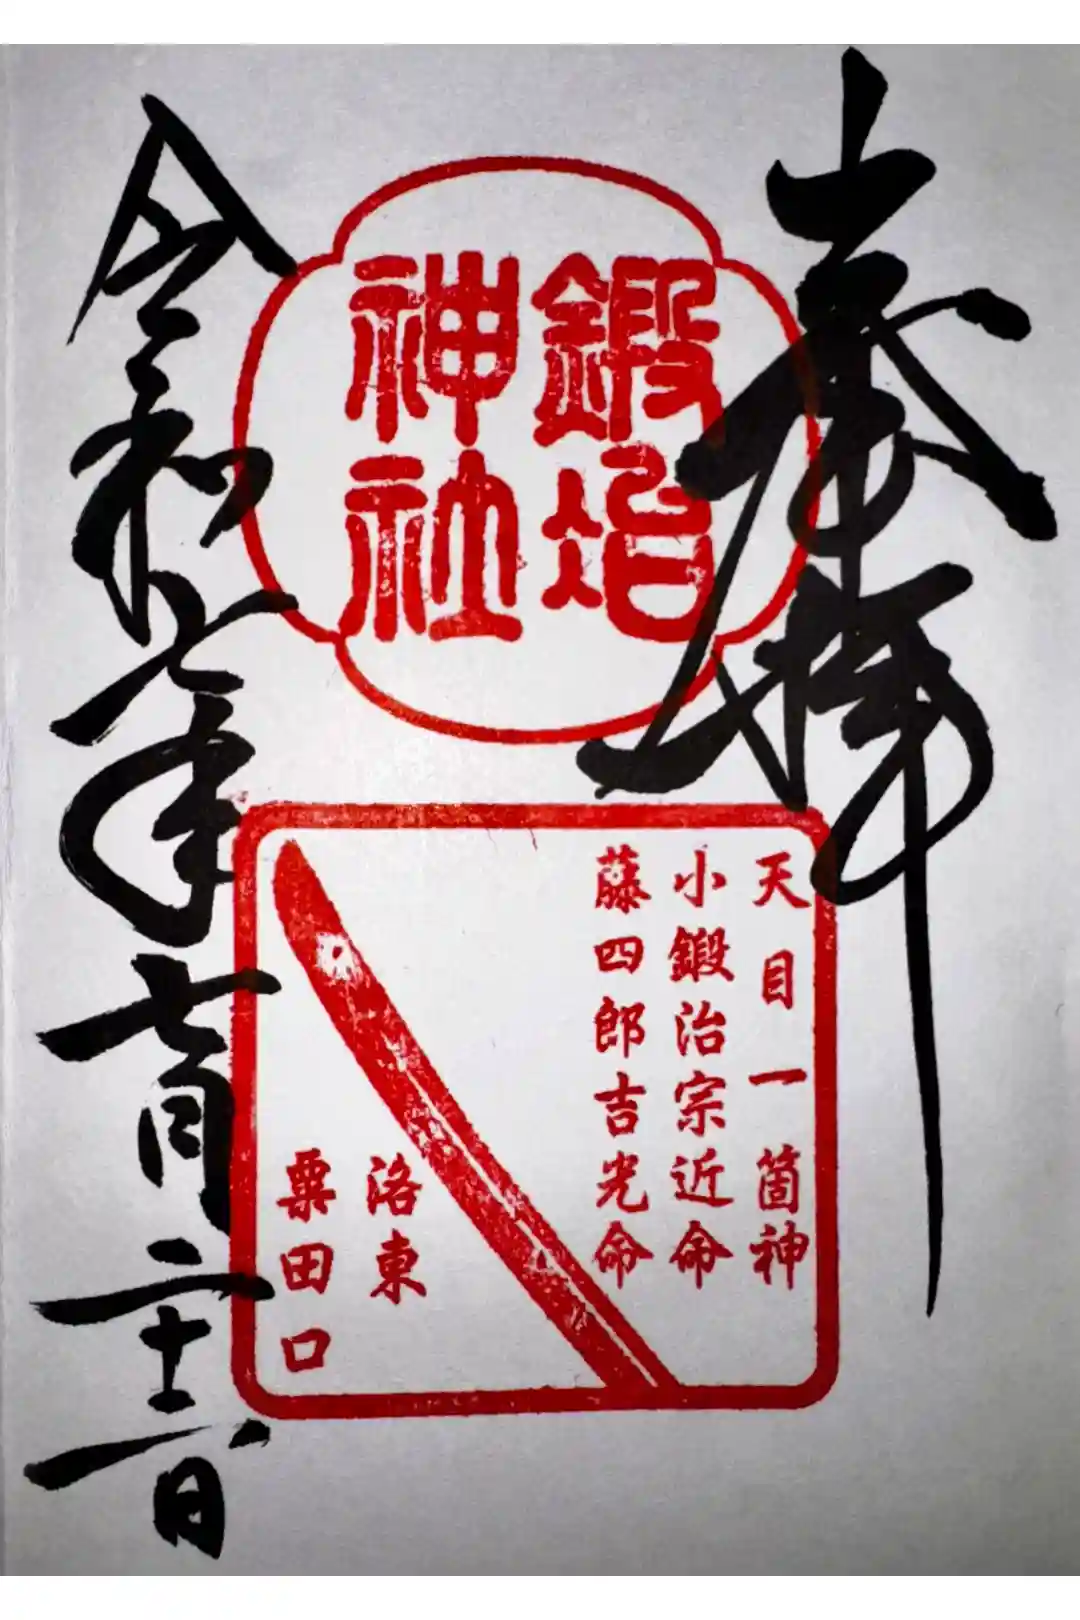 奉拝
鍛冶
神社
天目一箇神
小鍛治宗近命
藤四郎吉光命
洛東
粟田口
令和七年七月二十二日